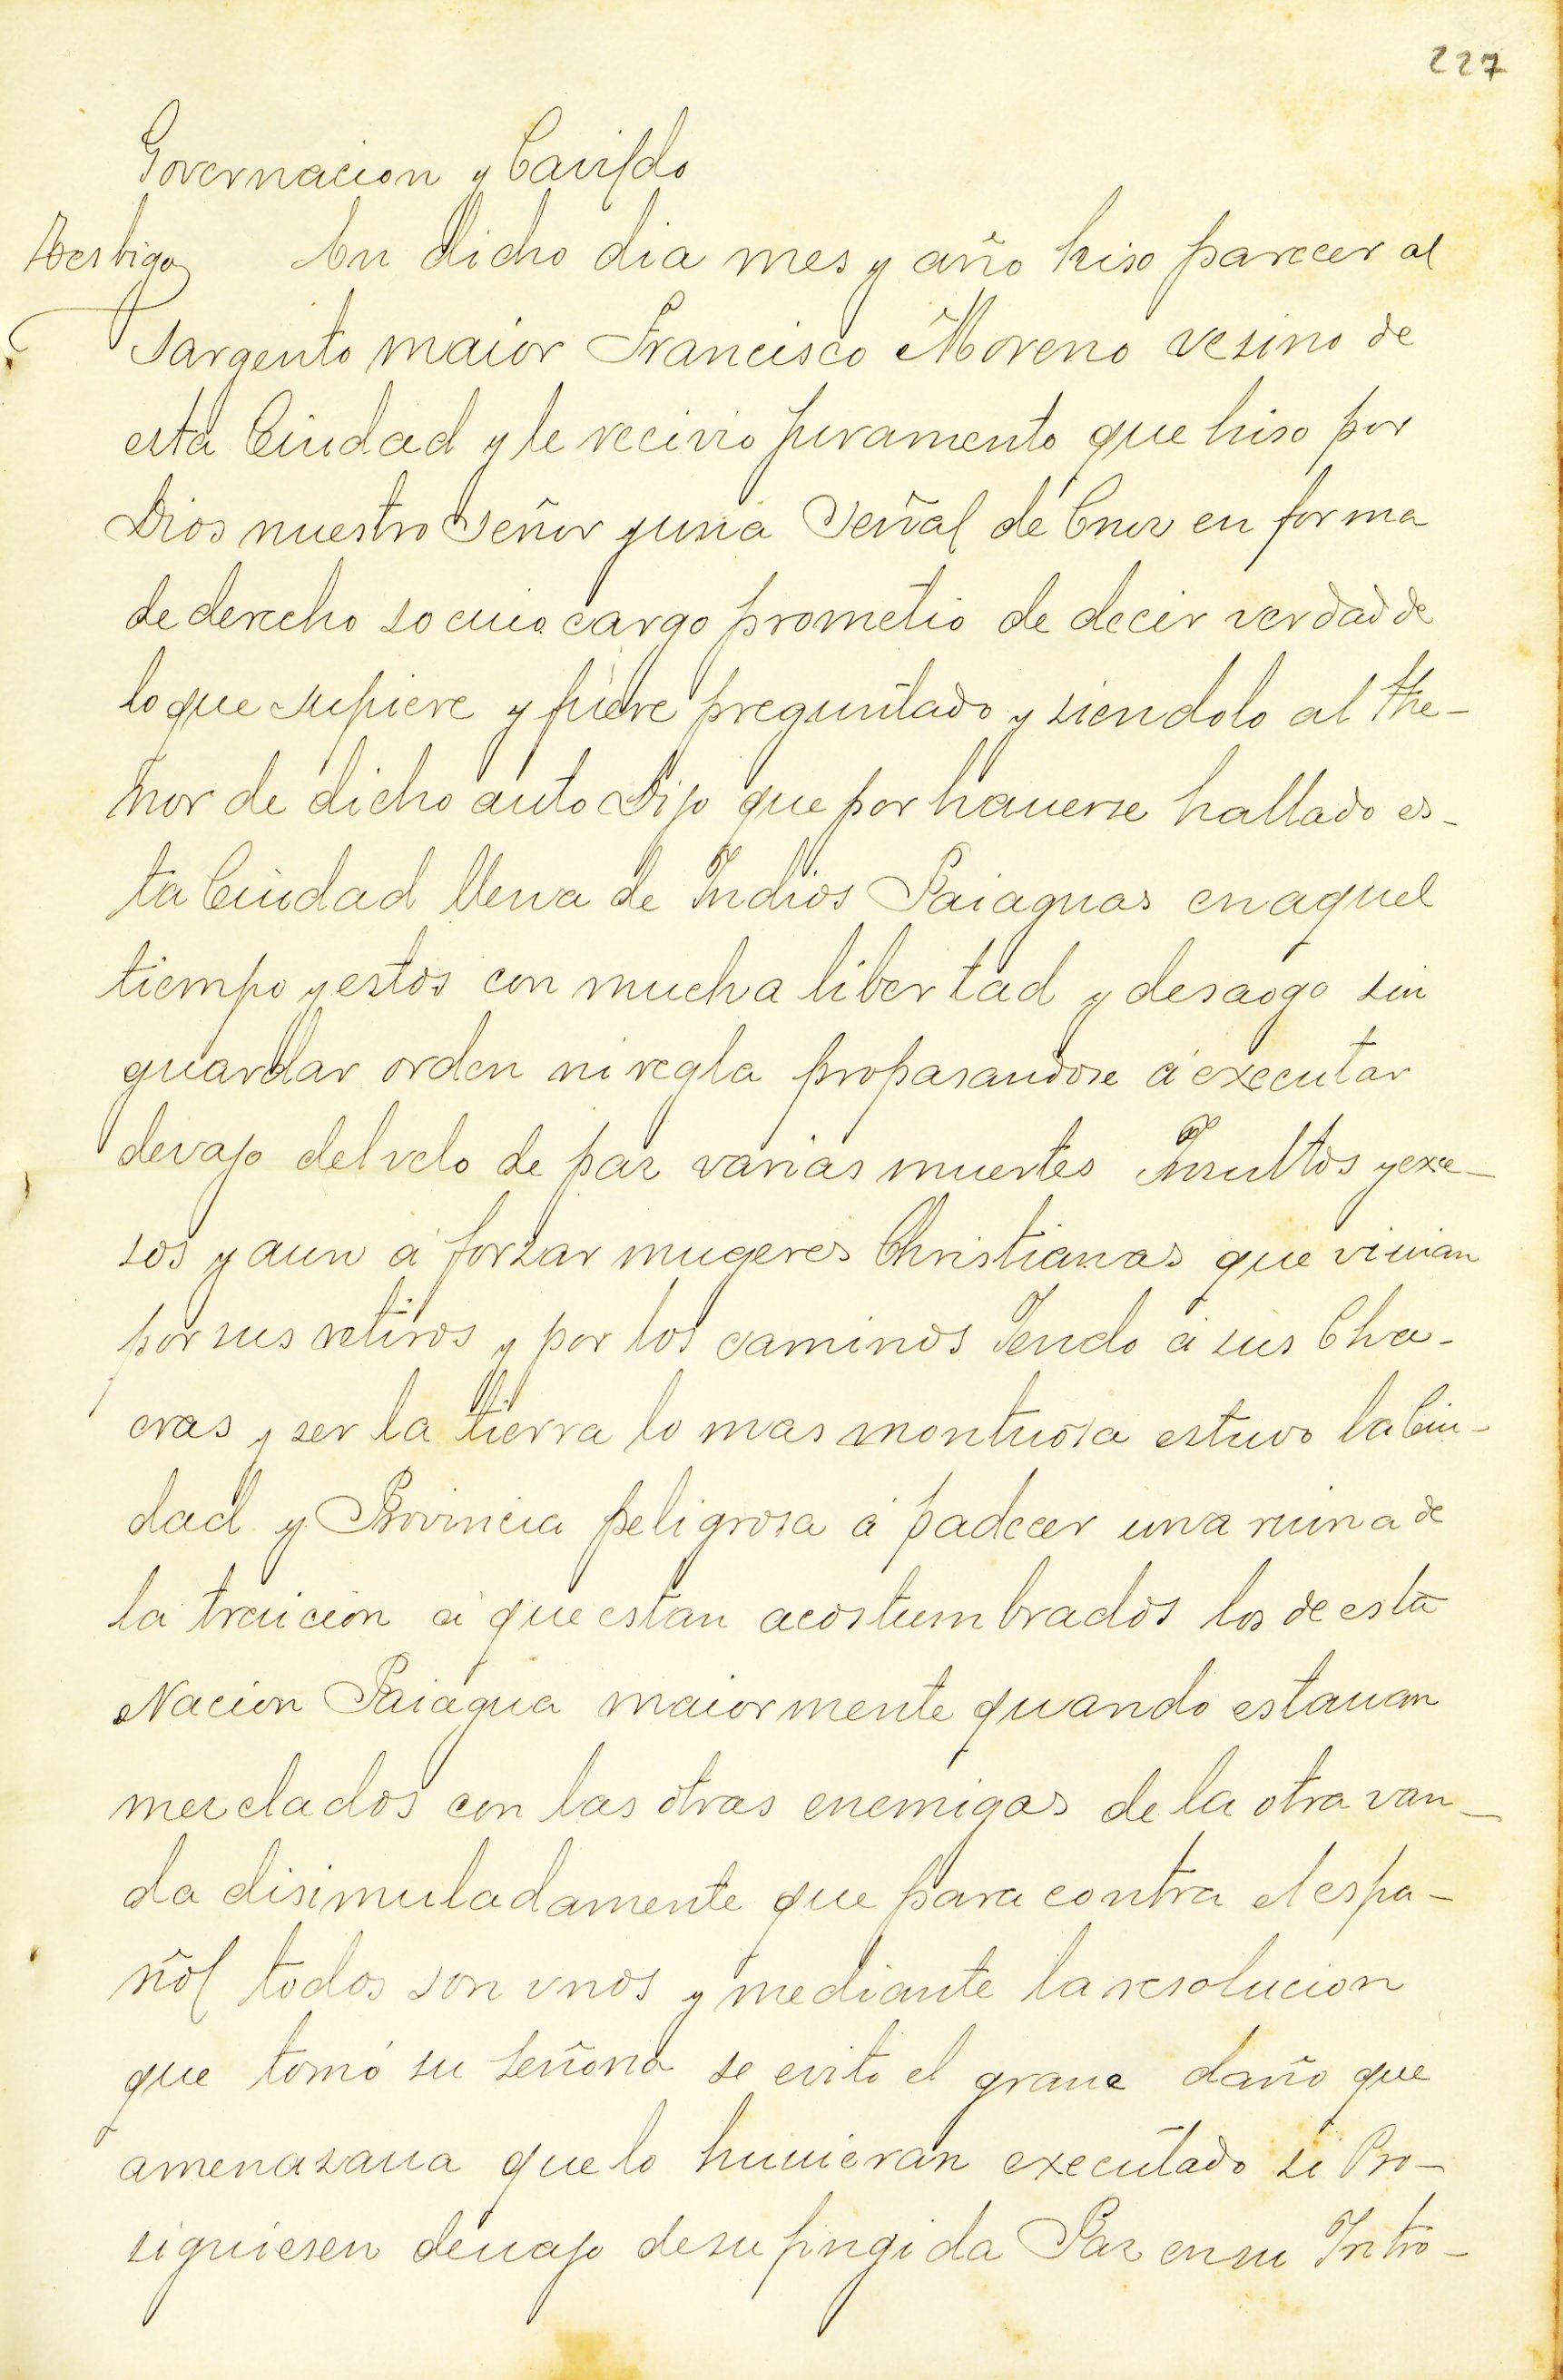 227
Governacion y Cavildo
Testigo En dicho dia mes y año hiso parecer al
Sargento maior Francisco Moreno vesino de
esta Ciudad y le recivio juramento que hiso por
Dios nuestro Señor y una Señal de Cruz en forma
de derecho so cuio cargo prometio de decir verdad de
lo que supiere y fuere preguntado y siendolo al the-
nor de dicho auto Dijo que por hauerse hallado es-
ta Ciudad llena de Indios Paiaguas en aquel
tiempo y estos con mucha libertad y desaogo sin
guardar orden ni regla propasandose á executar
devajo del velo de paz varias muertes Insultos y exe-
sos y aun á forzar mugeres Christianas que viuian
por sus retiros y por los caminos Iendo á sus Cha-
cras y ser la tierra lo mas montuosa estuvo la Ciu-
dad y Provincia peligrosa á padecer una ruina de
la traicion á que estan acostumbrados los de esta
Nacion Paiagua maiormente quando estauan
mezclados con las otras enemigas de la otra van-
da disimuladamente que para contra el espa-
ñol todos son unos y mediante la resolucion
que tomó su señoria se evito el graue daño que
amenasaua que lo huuieran executado si Pro-
siguiesen deuajo de su fingida Paz en su Intro-